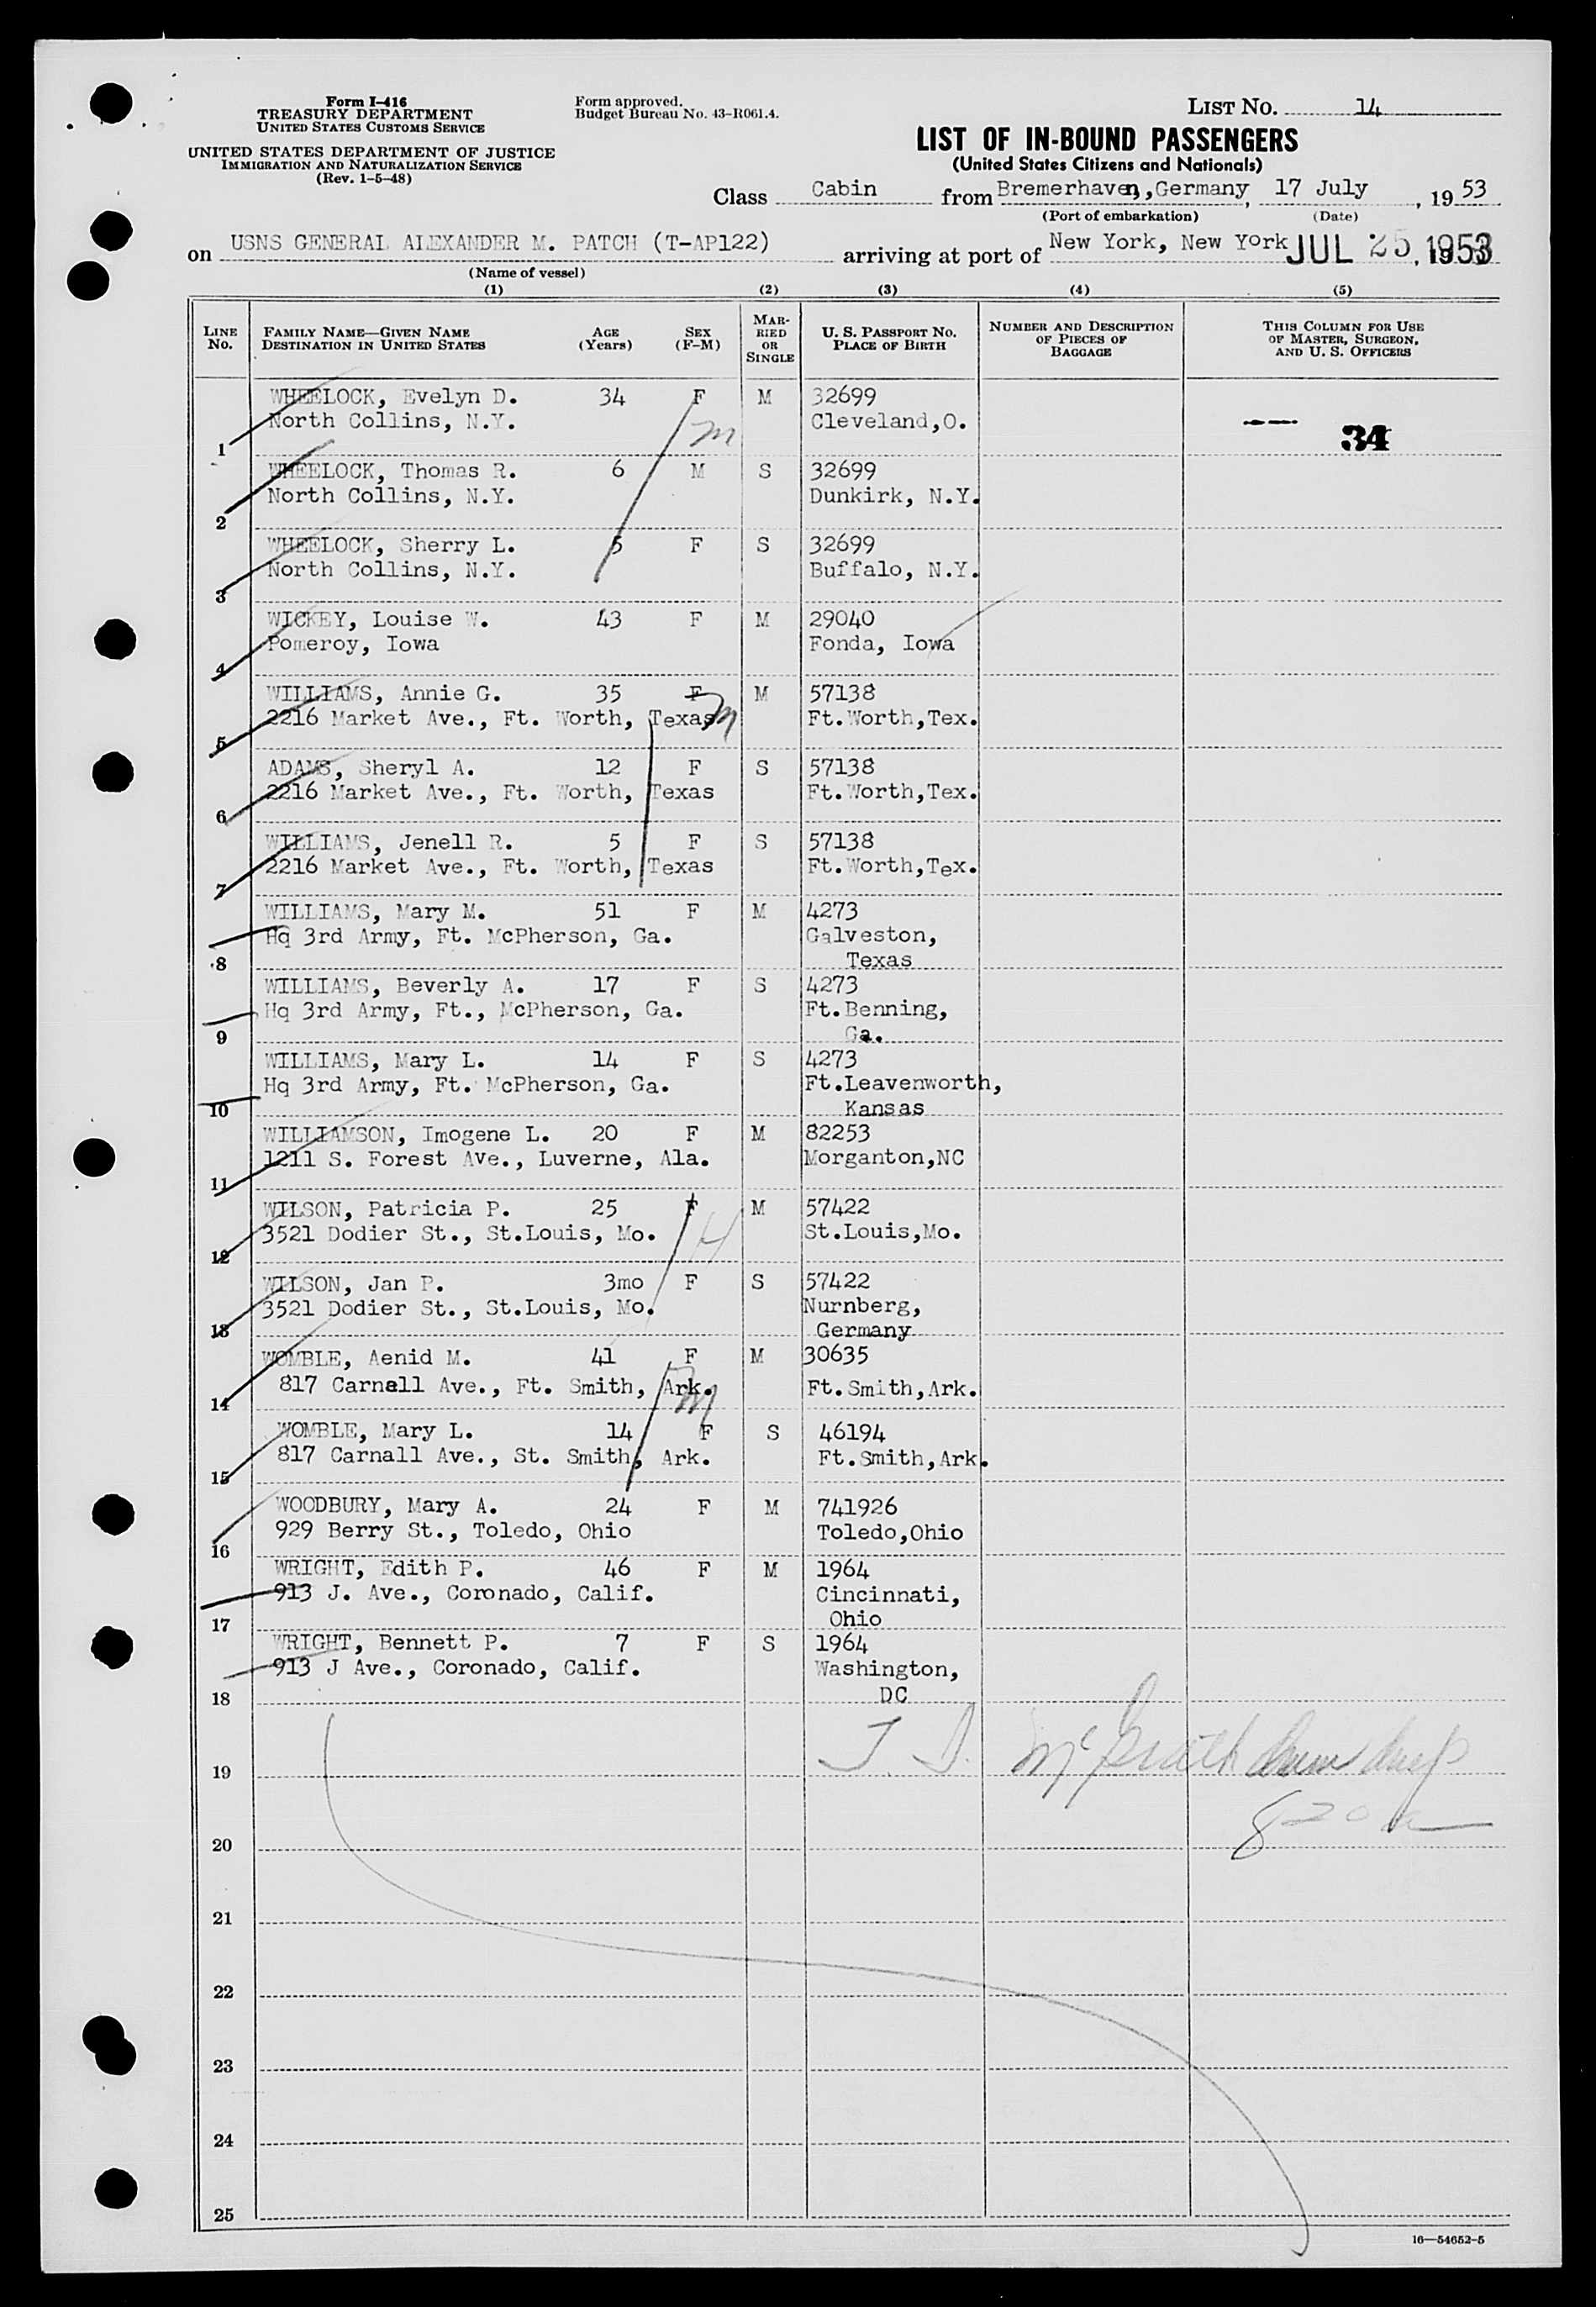 Form I-416
TREASURY DEPARTMENT
UNITED STATES CUSTOMS SERVICE
UNITED STATES DEPARTMENT OF JUSTICE
IMMIGRATION AND NATURALIZATION SERVICE
(Rev. 1-5-48)
Form approved.
Budget Bureau No. 43-R061.4.
LIST NO. 14
LIST OF IN-BOUND PASSENGERS
(United States Citizens and Nationals)
Class Cabin from Bremerhaven, Germany, 17 July, 1953
(Port of embarkation) (Date)
on USNS GENERAL ALEXANDER M. PATCH (T-AP122) arriving at port of New York, New York JUL 25, 1953
(Name of vessel)
(1) (2) (3) (4) (5)
LINE No. FAMILY NAME—GIVEN NAME DESTINATION IN UNITED STATES AGE (Years) SEX (F-M) MARRIED OR SINGLE U. S. PASSPORT NO. PLACE OF BIRTH NUMBER AND DESCRIPTION OF PIECES OF BAGGAGE THIS COLUMN FOR USE OF MASTER, SURGEON, AND U. S. OFFICERS
WHEELOCK, Evelyn D. 34 F M 32699
North Collins, N.Y. m Cleveland,O.
1 34
WHEELOCK, Thomas R. 6 M S 32699
North Collins, N.Y. Dunkirk, N.Y.
2
WHEELOCK, Sherry L. 5 F S 32699
North Collins, N.Y. Buffalo, N.Y.
3
WICKEY, Louise W. 43 F M 29040
Pomeroy, Iowa Fonda, Iowa
4
WILLIAMS, Annie G. 35 F M 57138
2216 Market Ave., Ft. Worth, Texas m Ft.Worth,Tex.
5
ADAMS, Sheryl A. 12 F S 57138
2216 Market Ave., Ft. Worth, Texas Ft.Worth,Tex.
6
WILLIAMS, Jenell R. 5 F S 57138
2216 Market Ave., Ft. Worth, Texas Ft.Worth,Tex.
7
WILLIAMS, Mary M. 51 F M 4273
Hq 3rd Army, Ft. McPherson, Ga. Galveston,
8 Texas
WILLIAMS, Beverly A. 17 F S 4273
Hq 3rd Army, Ft., McPherson, Ga. Ft.Benning,
9 Ga.
WILLIAMS, Mary L. 14 F S 4273
Hq 3rd Army, Ft. McPherson, Ga. Ft.Leavenworth,
10 Kansas
WILLIAMSON, Imogene L. 20 F M 82253
1211 S. Forest Ave., Luverne, Ala. Morganton,NC
11
WILSON, Patricia P. 25 F M 57422
3521 Dodier St., St.Louis, Mo. H St.Louis,Mo.
12
WILSON, Jan P. 3mo F S 57422
3521 Dodier St., St.Louis, Mo. Nurnberg,
13 Germany
WOMBLE, Aenid M. 41 F M 30635
817 Carnall Ave., Ft. Smith, Ark. m Ft.Smith,Ark.
14
WOMBLE, Mary L. 14 F S 46194
817 Carnall Ave., St. Smith, Ark. Ft.Smith,Ark.
15
WOODBURY, Mary A. 24 F M 741926
929 Berry St., Toledo, Ohio Toledo,Ohio
16
WRIGHT, Edith P. 46 F M 1964
913 J. Ave., Coronado, Calif. Cincinnati,
17 Ohio
WRIGHT, Bennett P. 7 F S 1964
913 J Ave., Coronado, Calif. Washington,
18 DC
19 McGrath
20
21
22
23
24
25
16—54652-5